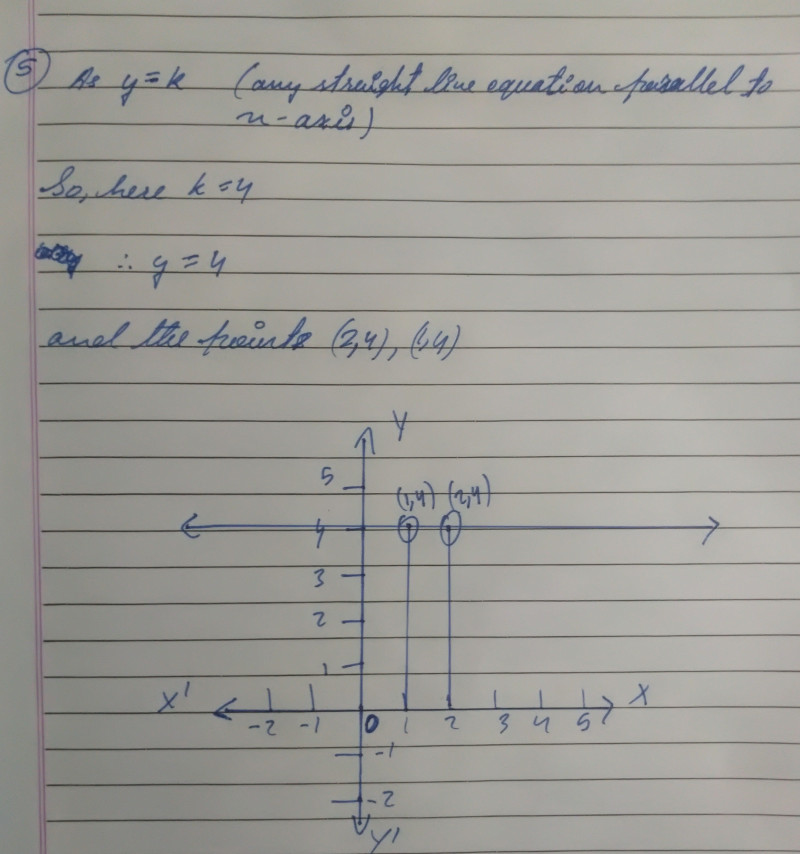 5 As y=k (any straight line equation parallel to
x-axis)
So, here k=4
∴ y=4
and the points (2,4), (1,4)
Y
5
(1,4) (2,4)
4
3
2
1
X' X
-2 -1 0 1 2 3 4 5
-1
-2
Y'